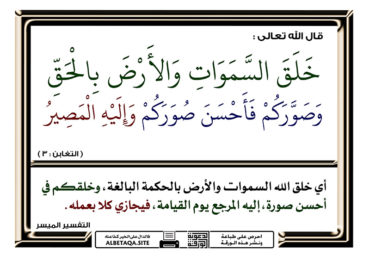 قال الله تعالى :
خَلَقَ السَّمَوَاتِ وَالْأَرْضَ بِالْحَقِّ
وَصَوَّرَكُمْ فَأَحْسَنَ صُوَرَكُمْ وَإِلَيْهِ الْمَصِيرُ
( التغابن : ٣ )
أي خلق الله السموات والأرض بالحكمة البالغة ، وخلقكم في
أحسن صورة ، إليه المرجع يوم القيامة ، فيجازي كلا بعمله .
التفسير الميسر
احرص على طباعة
ونشر هذه الورقة
فالدال على الخير كفاعله
ALBETAQA.SITE